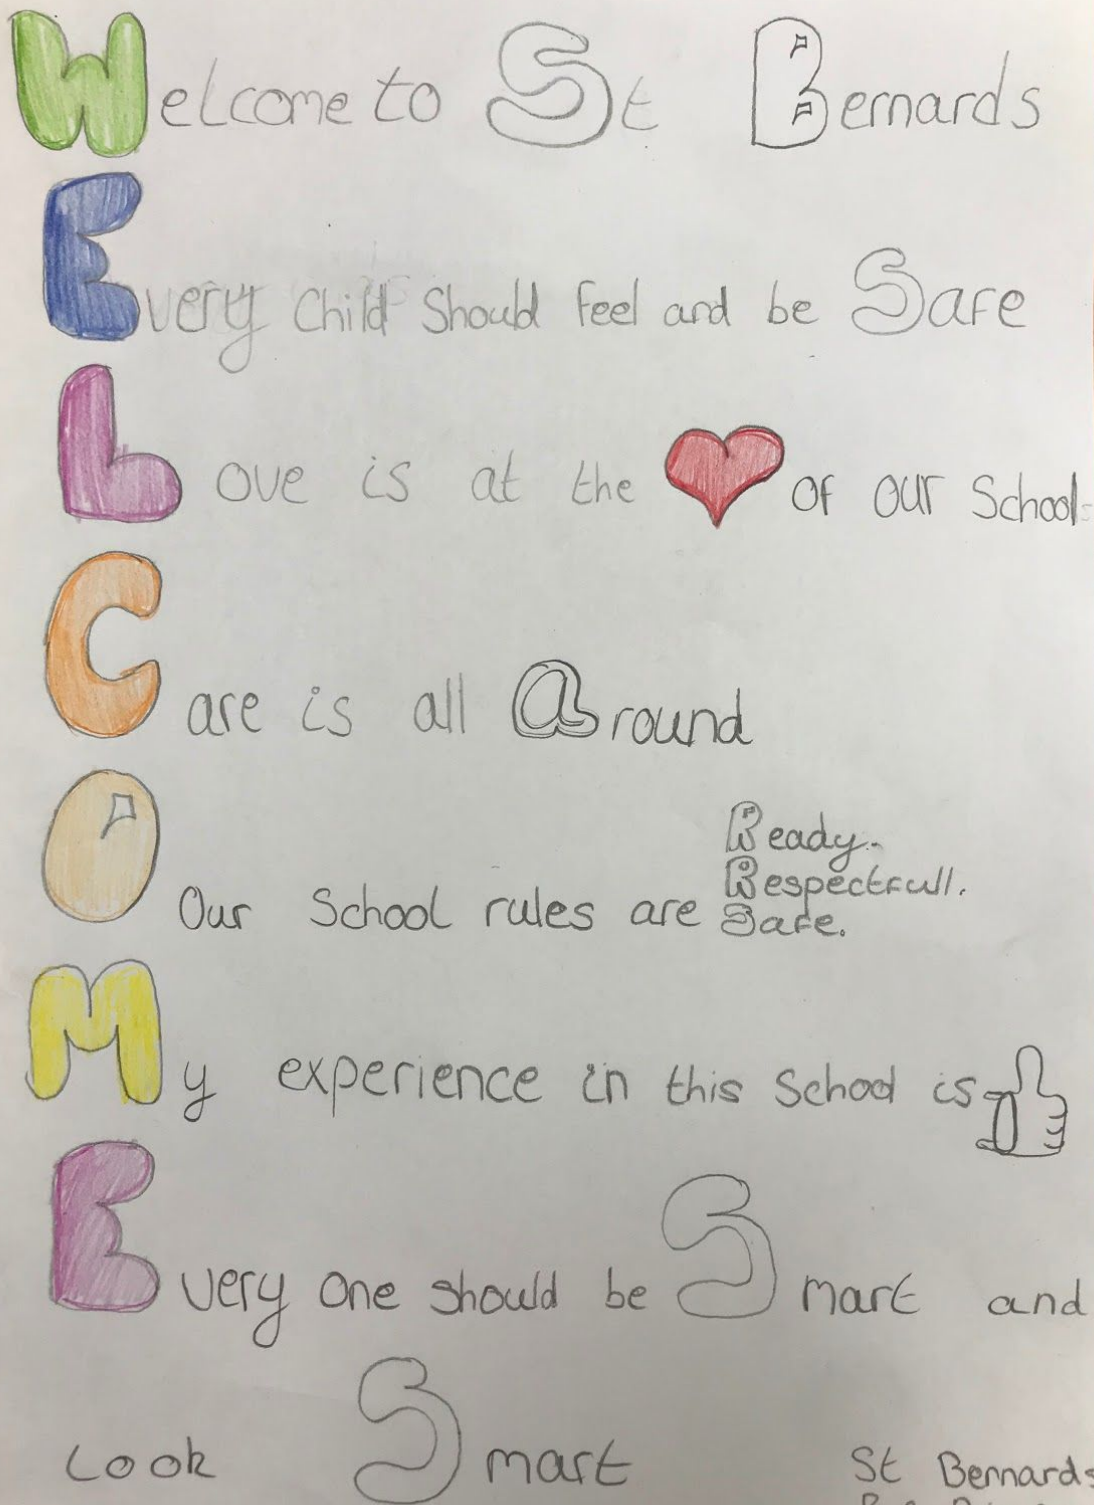 Welcome to St Bernards
Every Child Should Feel and be Safe
Love is at the of our School
Care is all around
Ready.
Respectfull.
Our School rules are Safe.
My experience in this School is
Every one should be Smart and
Look Smart
St Bernards